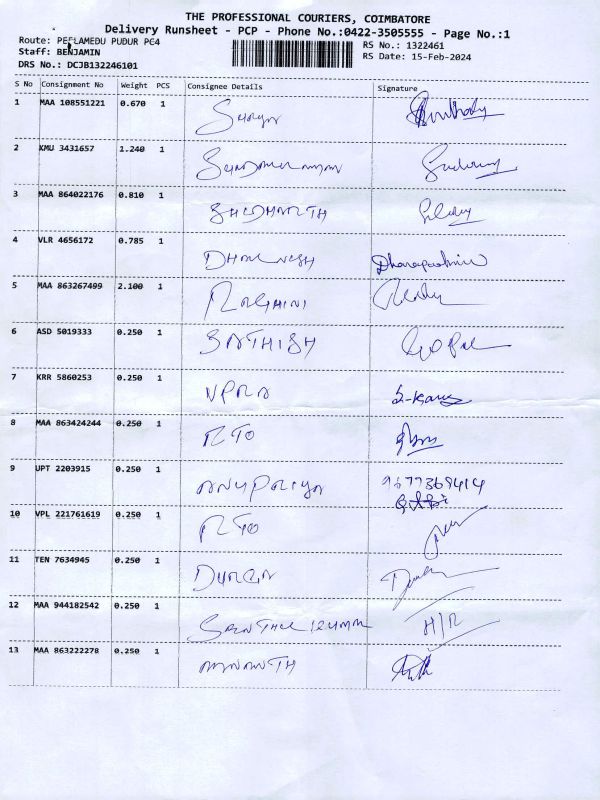 THE PROFESSIONAL COURIERS, COIMBATORE
Delivery Runsheet - PCP - Phone No.:0422-3505555 - Page No.:1
Route: PEELAMEDU PUDUR PC4
RS No.: 1322461
Staff: BENJAMIN
RS Date: 15-Feb-2024
DRS No.: DCJB132246101
S No Consignment No Weight PCS Consignee Details Signature
1 MAA 108551221 0.670 1 Surya
2 KMU 3431657 1.240 1
3 MAA 864022176 0.810 1 SHIDHARTH
4 VLR 4656172 0.785 1 DHANUESH
5 MAA 863267499 2.100 1 RAGHINI
6 ASD 5019333 0.250 1 SATHISH Gopal
7 KRR 5860253 0.250 1
8 MAA 863424244 0.250 1 RTO
9 UPT 2203915 0.250 1 ANUPRIYA 9677369414
10 VPL 221761619 0.250 1 RTO
11 TEN 7634945 0.250 1
12 MAA 944182542 0.250 1 H/R
13 MAA 863222278 0.250 1